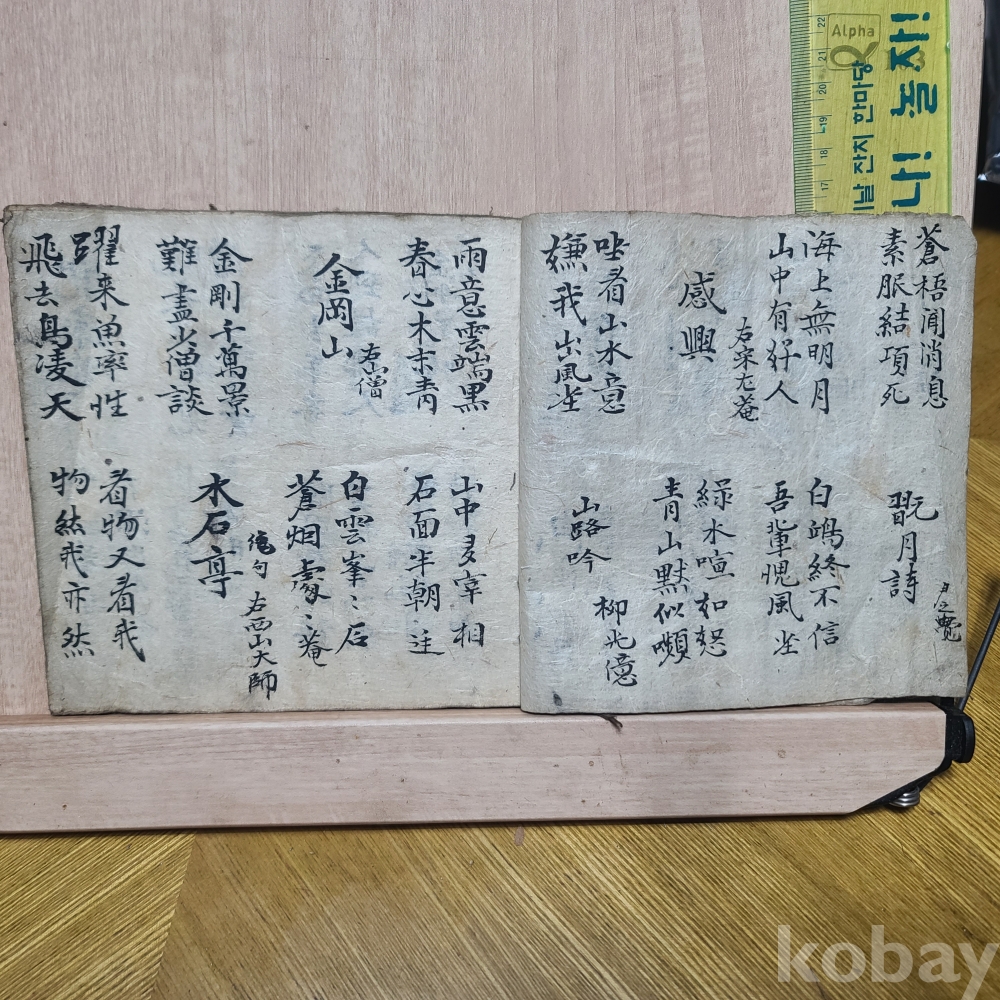 蒼梧聞消息
素服結項死
翫月詩
海上無明月
山中有好人
白鷗終不信
吾輩愧風塵
右宋尤菴
感興
綠水喧如怒
青山默似嚬
坐看山水意
嫌我出風塵
山路吟
柳兆億
雨意雲端黑
春心木末青
山中多宰相
石面半朝廷
金岡山
右僧
白雲峯〻石
蒼烟處〻菴
金剛千萬景
難盡少僧談
水石亭
絶句 右西山大師
躍来魚率性
飛去鳥凌天
看物又看我
物然我亦然
Alpha
날 잔치 한마당
나! 놀자!
22
21
20
19
18
17
kobay